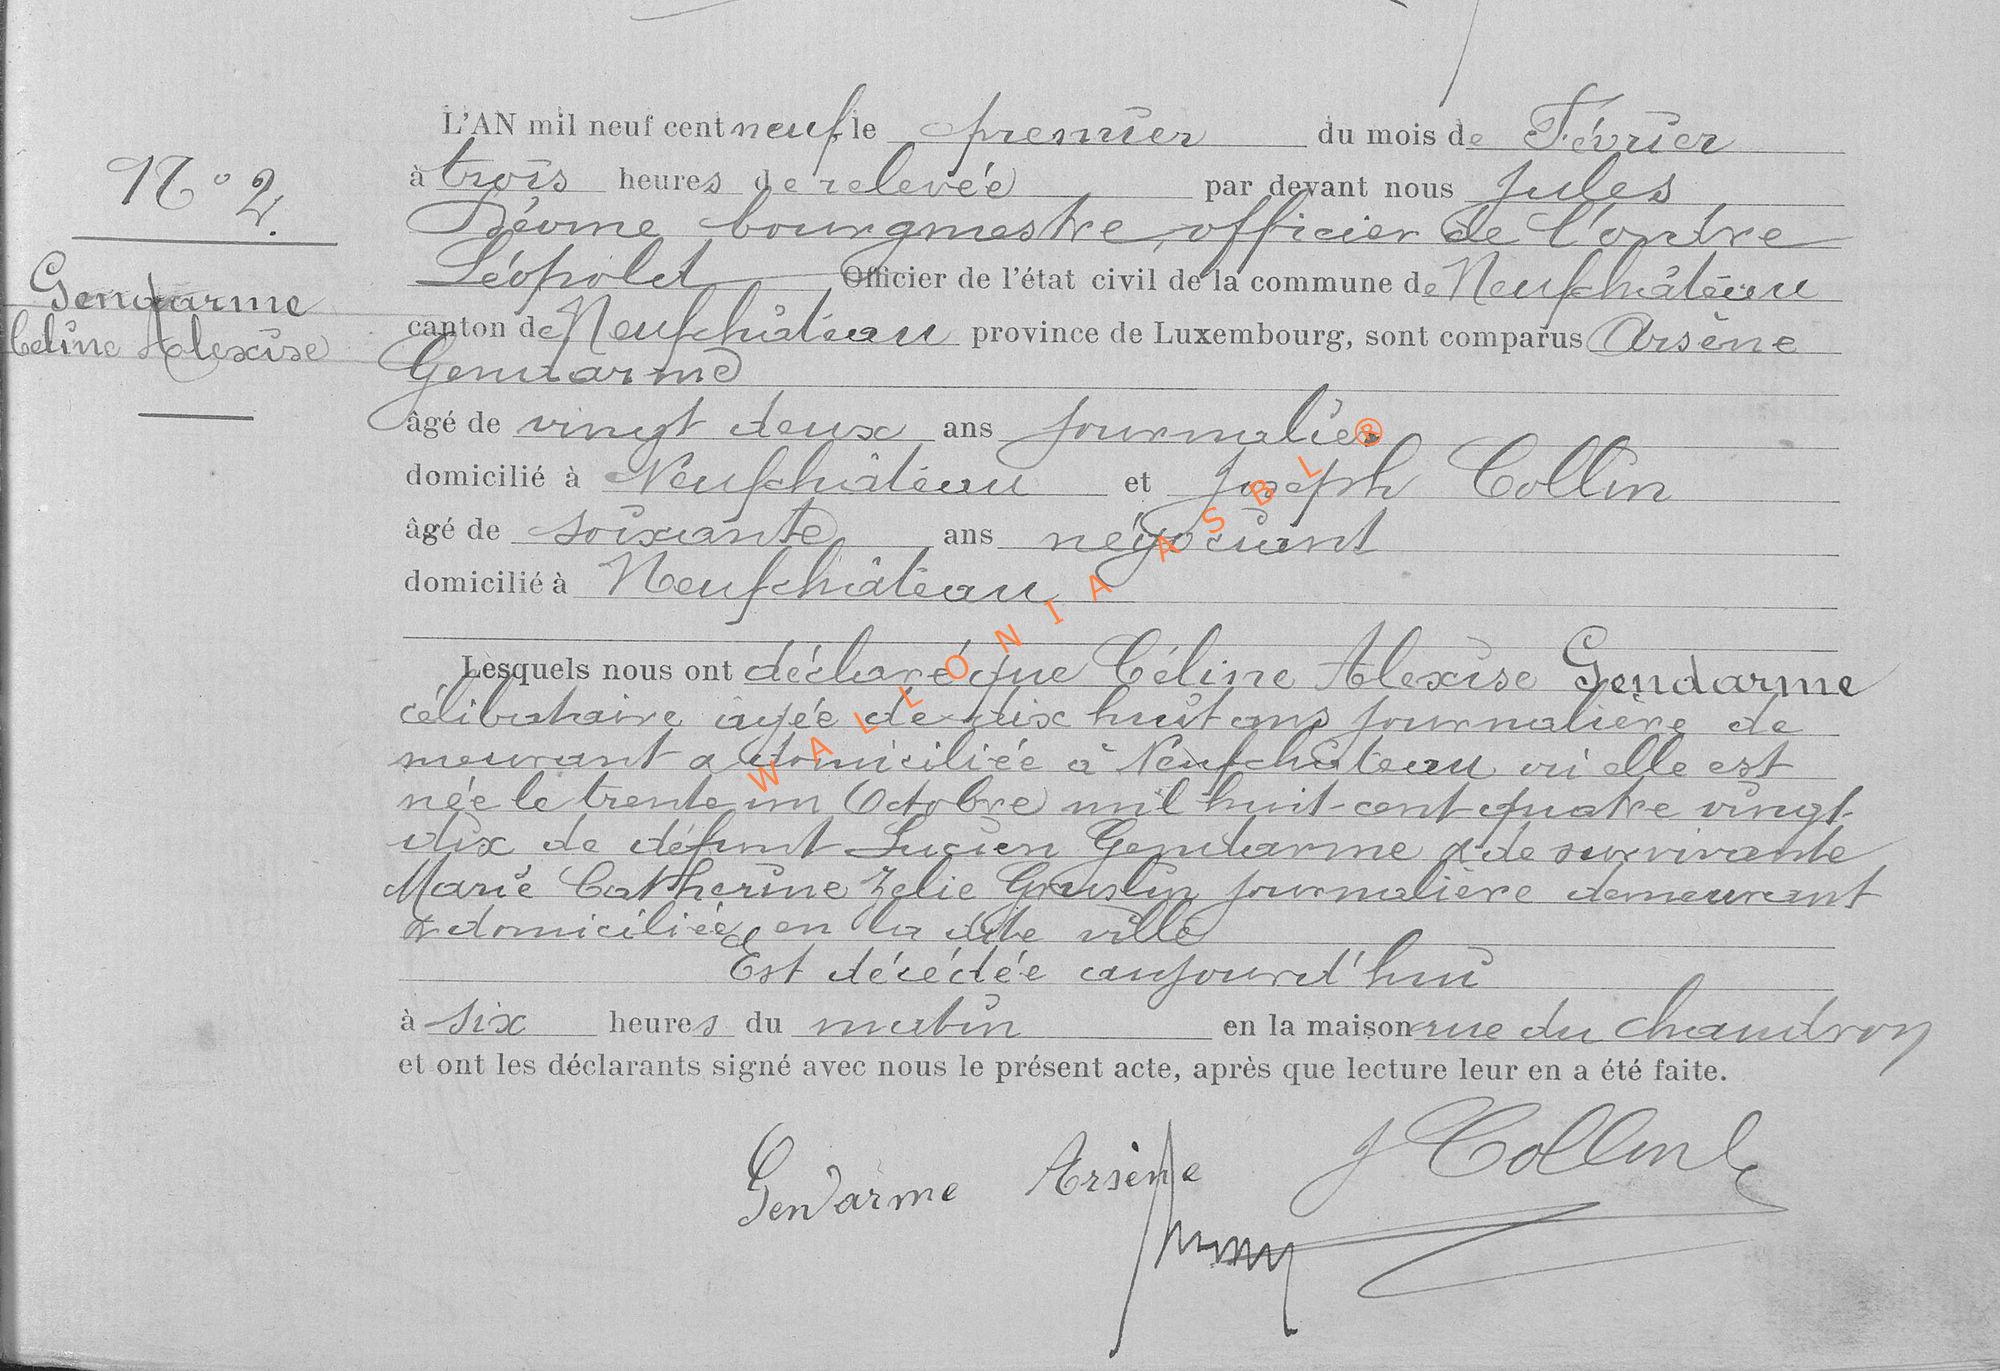 L'AN mil neuf cent neuf, le premier du mois de Février
à trois heures de relevée par devant nous Jules
bourgmestre, officier de l'ordre
Léopold Officier de l'état civil de la commune de Neufchâteau
canton de Neufchâteau province de Luxembourg, sont comparus Arsène
Gendarme
âgé de vingt deux ans journalier
domicilié à Neufchâteau et Joseph Collin
âgé de soixante ans négociant
domicilié à Neufchâteau
Lesquels nous ont déclaré que Céline Alexise Gendarme
célibataire âgée de dix huit ans journalière de
meurant & domiciliée à Neufchâteau où elle est
née le trente un Octobre mil huit-cent quatre vingt-
dix de défunt Lucien Gendarme & de survivante
Marie Catherine Zelie Gruslin journalière demeurant
& domiciliée en la dite ville
Est décédée aujourd'hui
à six heures du matin en la maison rue du chaudron
et ont les déclarants signé avec nous le présent acte, après que lecture leur en a été faite.
Gendarme Arsène J Collin
N° 2.
Gendarme
Céline Alexise
WALLONIA ASBL ®